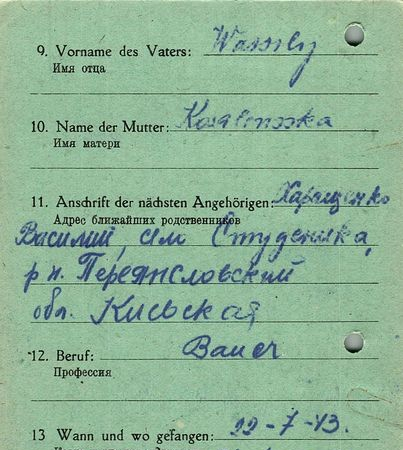 9. Vorname des Vaters: Wassily
Имя отца
10. Name der Mutter:
Имя матери
11. Anschrift der nächsten Angehörigen: Харащенко
Адрес ближайших родственников
Василий, ям Студеника,
р н. Переяисловский
обл. Киевская
12. Beruf: Bauer
Профессия
13 Wann und wo gefangen: 22-7-43.